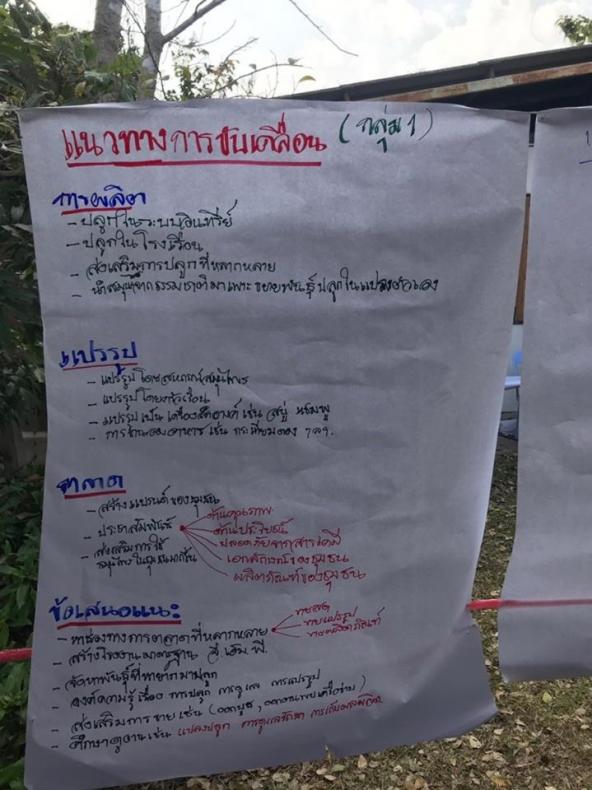 แนวทางการขับเคลื่อน (กลุ่ม 1)
การผลิต
- ปลูกในระบบอินทรีย์
- ปลูกในโรงเรือน
- ส่งเสริมการปลูกที่หลากหลาย
- นำสมุนไพรจากธรรมชาติมาเพาะ ขยายพันธุ์ปลูกในแปลงตัวเอง
แปรรูป
- แปรรูปโดยสหกรณ์สมุนไพร
- แปรรูปโดยครัวเรือน
- แปรรูปเป็นเครื่องสำอางค์ เช่น สบู่ แชมพู
- การถนอมอาหาร เช่น กระเทียมดอง ฯลฯ
ตลาด
- สร้างแบรนด์ของชุมชน
- ประชาสัมพันธ์
ด้านคุณภาพ
ด้านประโยชน์
ปลอดภัยจากสารเคมี
เอกลักษณ์ของชุมชน
ผลิตภัณฑ์ของชุมชน
- ส่งเสริมการใช้
สมุนไพรในชุมชนมากขึ้น
ข้อเสนอแนะ
- หาช่องทางการตลาดที่หลากหลาย
ขายสด
ขายแปรรูป
ขายผลิตภัณฑ์
- สร้างโรงงานมาตรฐาน จี เอ็ม พี
- จัดหาพันธุ์ที่หายากมาปลูก
- องค์ความรู้เรื่อง การปลูก การดูแล การแปรรูป
- ส่งเสริมการขาย เช่น (ออกบูธ,
- ศึกษาดูงาน เช่น แปลงปลูก การดูแลรักษา การเก็บผลผลิต